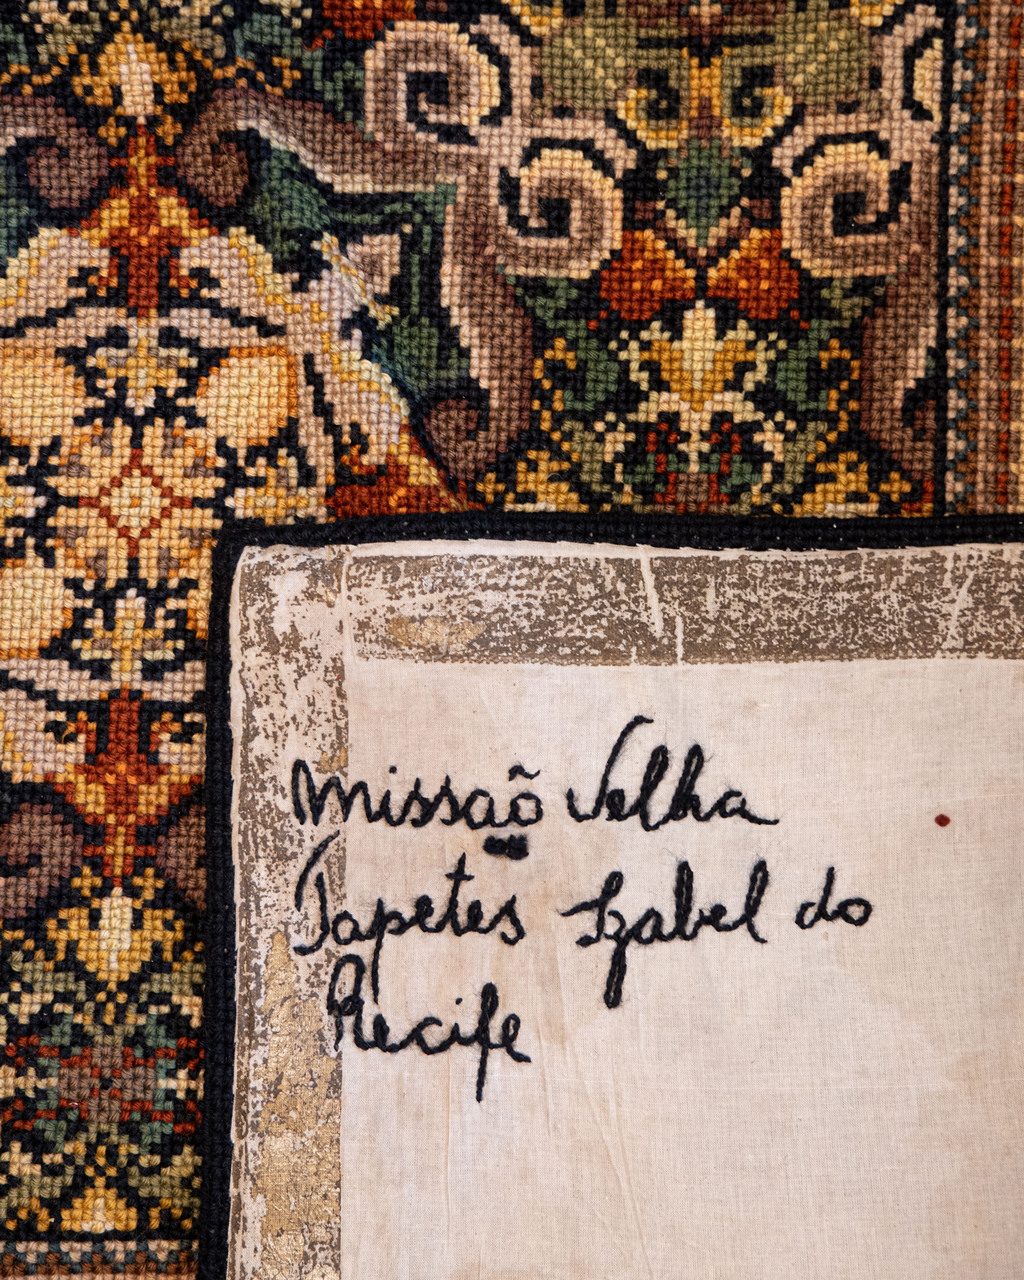 Missaõ Velha
Tapetes Izabel do
Recife